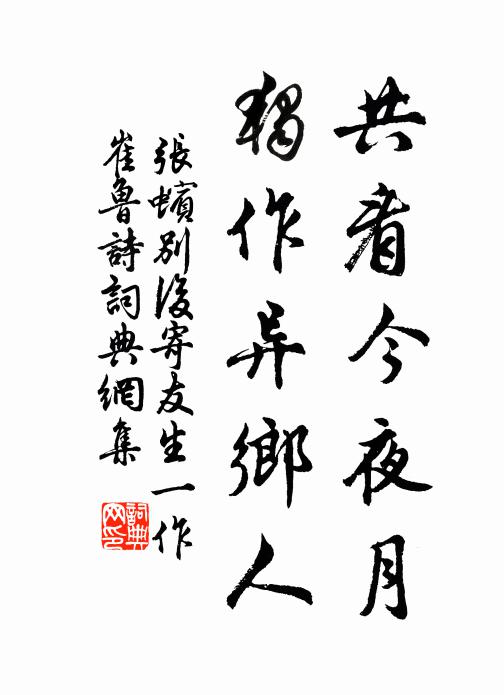 共看今夜月
獨作异鄉人
張蠙別後寄友生一作
崔魯詩詞典網集
詞典
网印